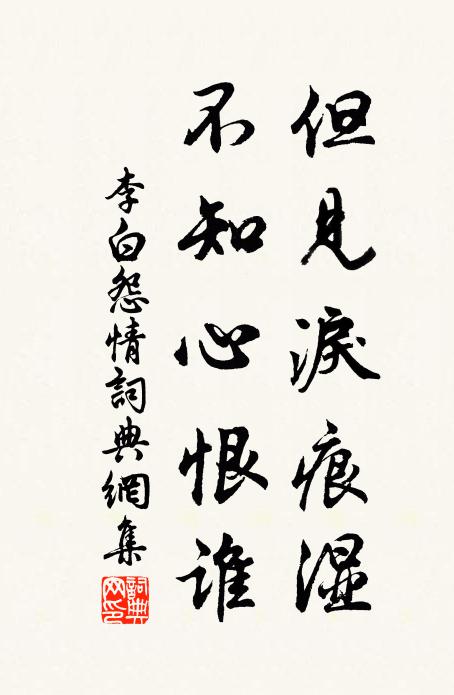 但見淚痕湿
不知心恨誰
李白怨情詞典網集
詞典网印